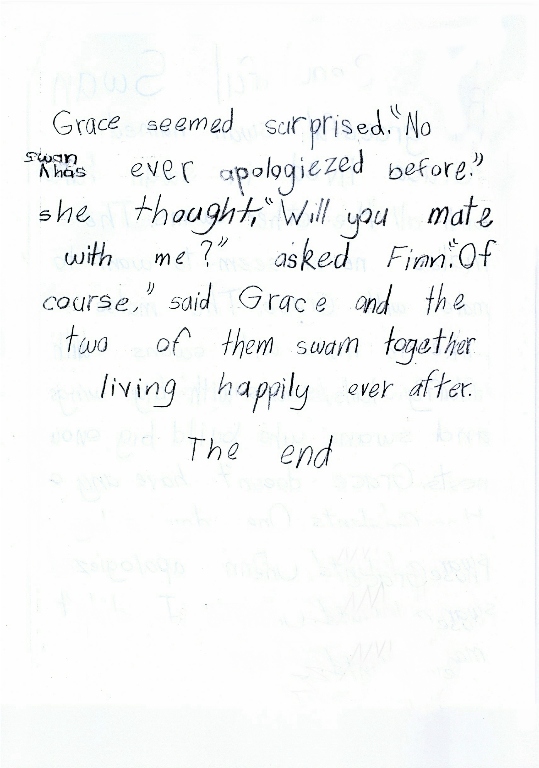 Grace seemed surprised. "No
swan
^ has ever apologiezed before."
she thought. "Will you mate
with me?" asked Finn. "Of
course," said Grace and the
two of them swam together
living happily ever after.
The end